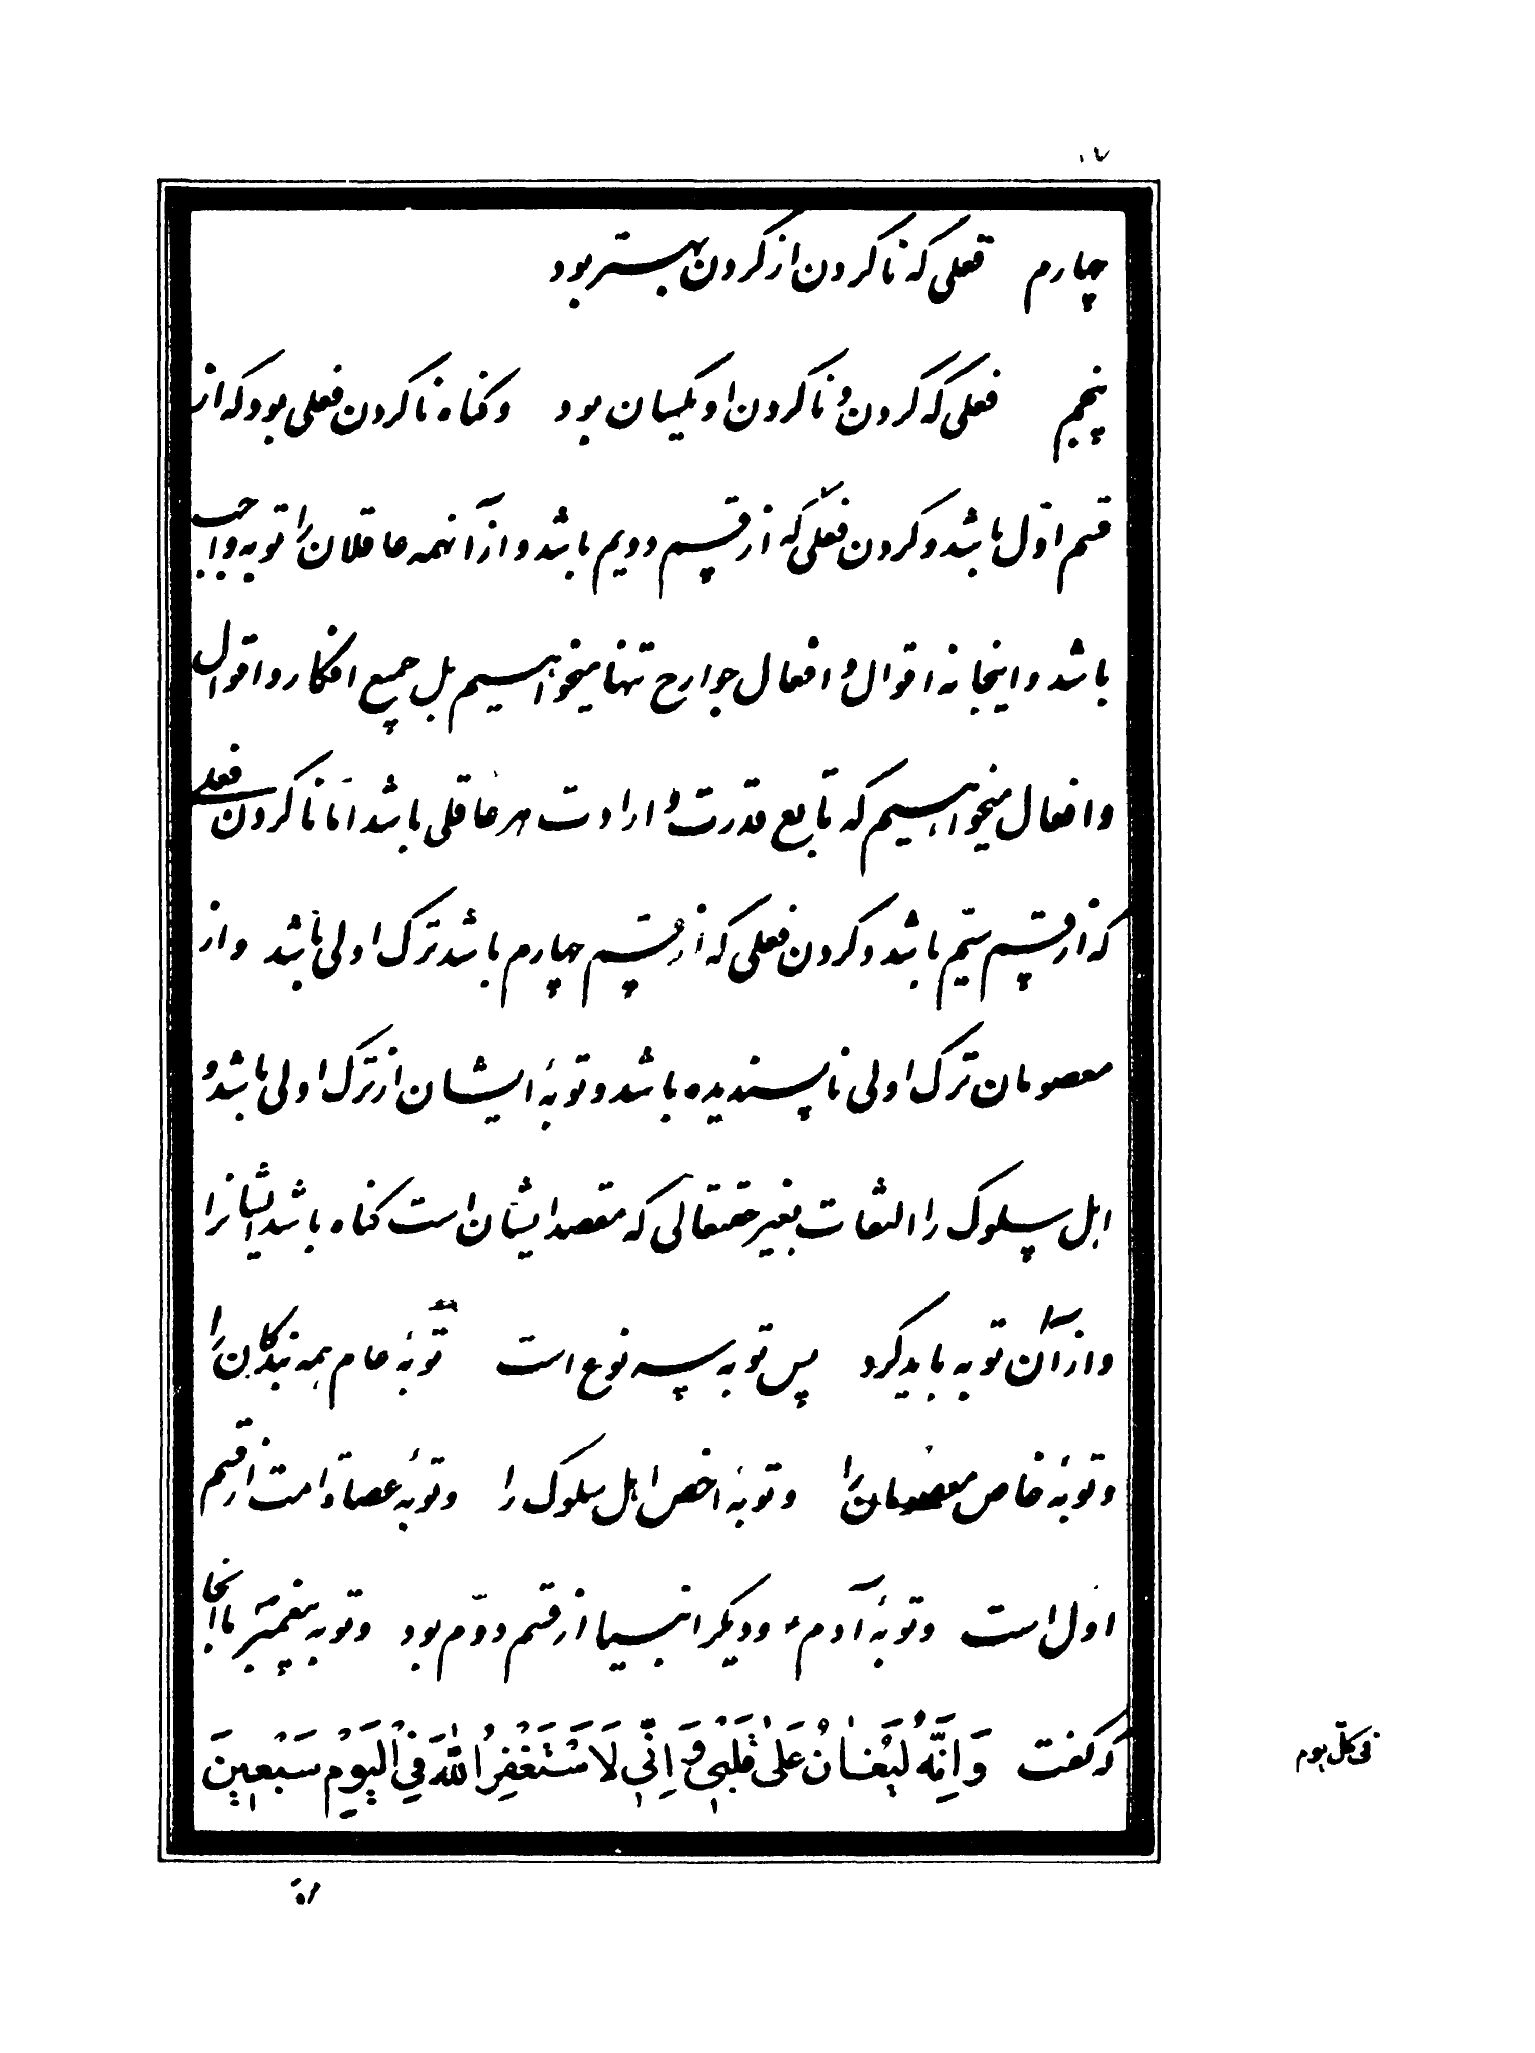 ۱۷
چهارم فعلی که ناکردن از کردن بهتر بود
پنجم فعلی که کردن و ناکردن او یکسان بود و کناه ناکردن فعلی بود که از
قسم اوّل باشد و کردن فعلی که از قسم دویم باشد و از آن همه عاقلان را توبه واجب
باشد و اینجا نه اقوال و افعال جوارح تنها میخواهیم بل جمیع افکار و اقوال
و افعال میخواهیم که تابع قدرت و ارادت هر عاقلی باشد امّا ناکردن فعلی
که از قسم سیّم باشد و کردن فعلی که از قسم چهارم باشد ترک اولی باشد و از
معصومان ترک اولی ناپسندیده باشد و توبهٔ ایشان از ترک اولی باشد و
اهل سلوک را التفات بغیر حقتعالی که مقصد ایشان است کناه باشد ایشانرا
و از آن توبه باید کرد پس توبه سه نوع است توبهٔ عام همه بندکان را
و توبهٔ خاص معصومان را و توبهٔ اخص اهل سلوک را و توبهٔ عصاة امت از قسم
اوّل است و توبهٔ آدم ع و دیکر انبیا از قسم دوّم بود و توبه پیغمبر ما آنجا
که کفت وَاِنَّهُ لَيُغٰانُ عَلىٰ قَلْبٖى وَ اِنّٖى لَاَسْتَغْفِرُ اللّٰهَ فِى الْيَوْمِ سَبْعٖينَ
فی کلّ یوم
مرة